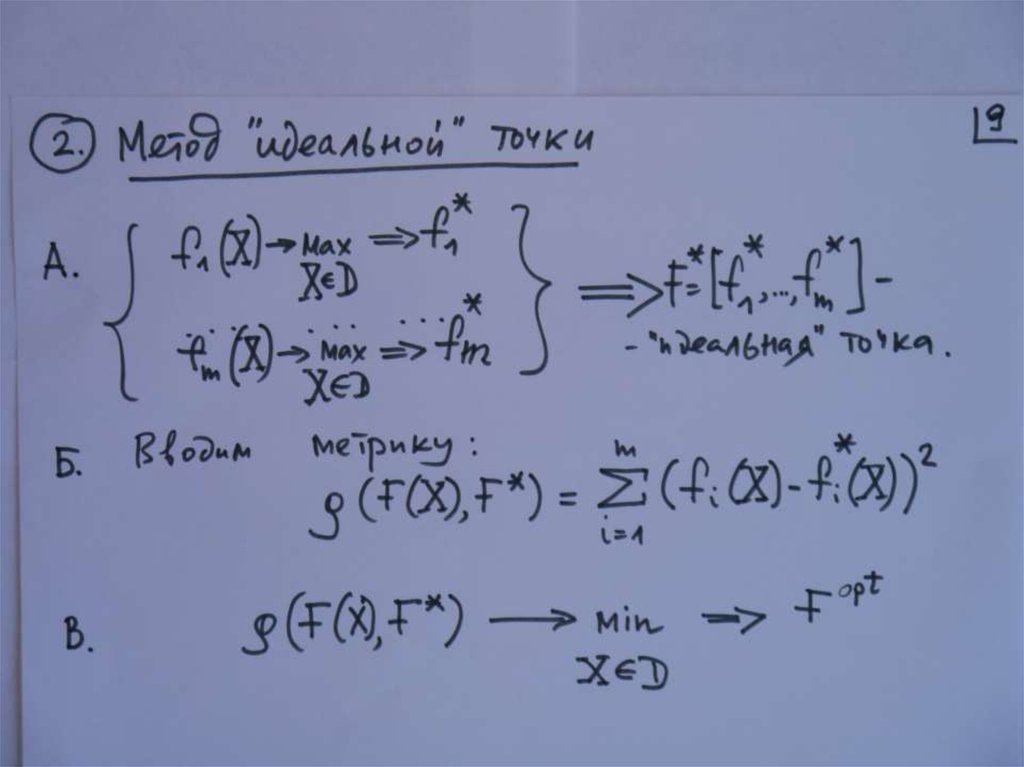 2. Метод "идеальной" точки
9
А. { f₁(X) → max ⟹ f₁* } ⟹ F* = [f₁*,..., fₘ*] –
X∈D
... ... ...
fₘ(X) → max ⟹ fₘ* – "идеальная" точка.
X∈D
Б. Вводим метрику:
ρ(F(X), F*) = ∑ᵢ₌₁ᵐ (fᵢ(X) - fᵢ*(X))²
В. ρ(F(X), F*) ⟶ min ⟹ F^opt
X∈D